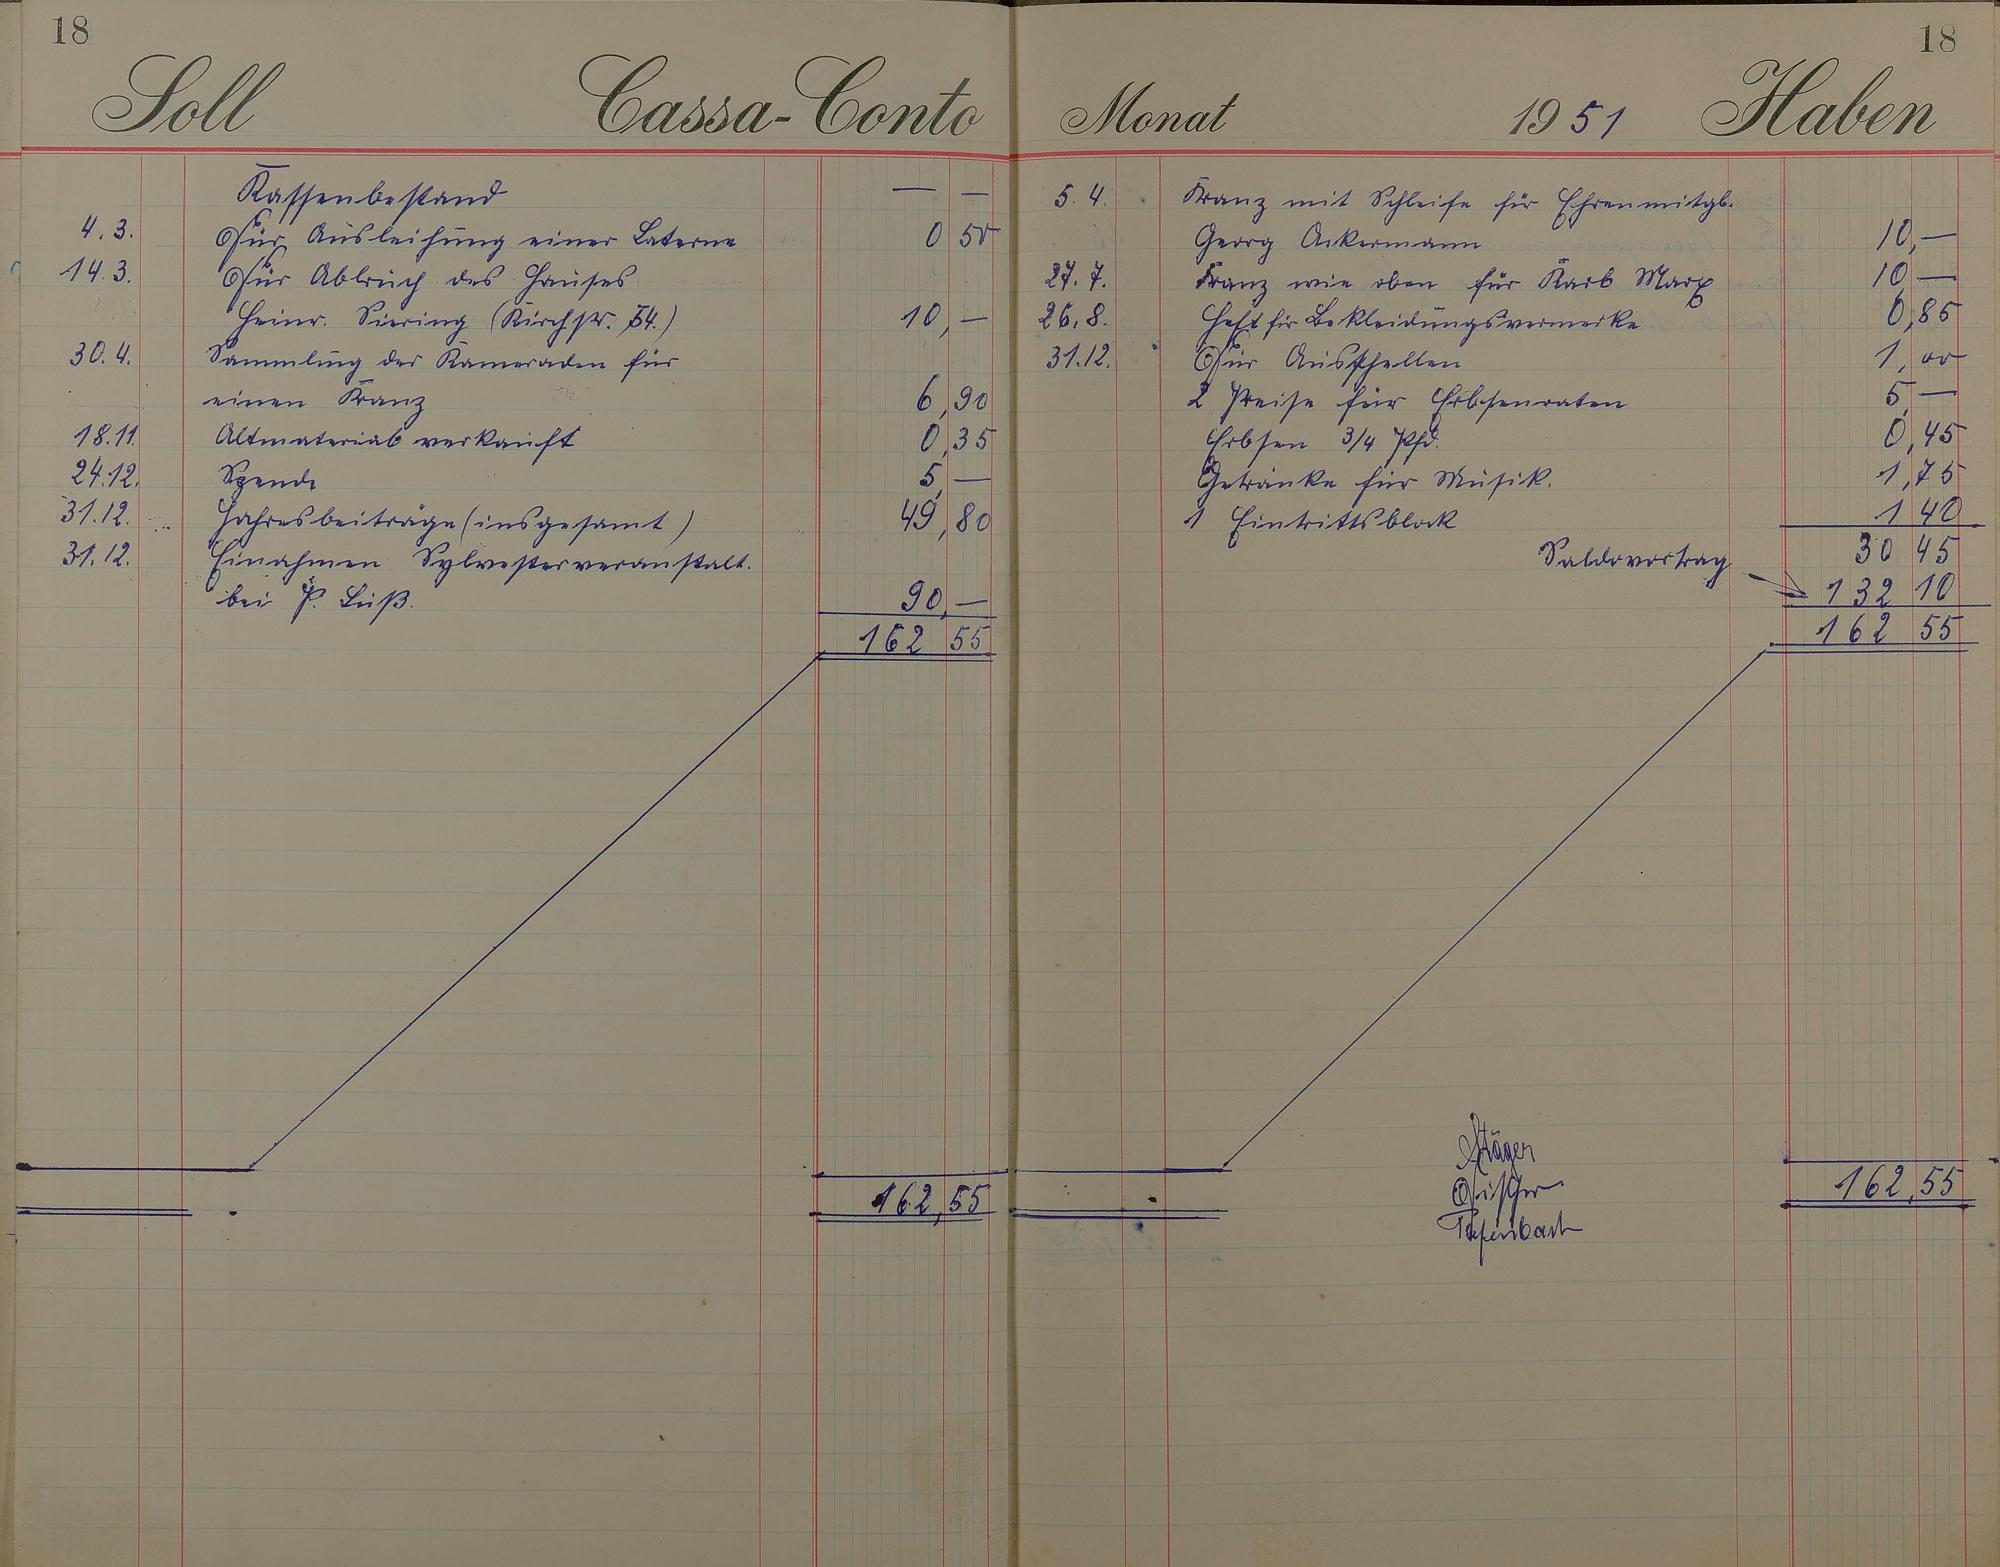 18
Soll Cassa-Conto
Kassenbestand — —
4.3. Für Ausleihung einer Laterne 0 50
14.3. Für Abbruch des Hauses
Heinr. Siering (Kirchstr. 54.) 10,—
30.4. Sammlung der Kameraden für
einen Kranz 6,90
18.11. Altmaterial verkauft 0,35
24.12. Spende 5,—
31.12. Jahresbeiträge (insgesamt) 49,80
31.12. Einahmen Sylvesterveranstalt.
bei P. Luß. 90,—
162 55
162,55
18
Monat 1951 Haben
5.4. Kranz mit Schleife für Ehrenmitgl.
Georg Ackermann 10,—
27.7. Kranz wie oben für Karl Marx 10 —
26.8. Heft für Bekleidungsvermerke 0,85
31.12. Für Ausschellen 1,00
2 Preise für Erbsenraten 5 —
Erbsen 3/4 Pfd. 0,45
Getränke für Musik. 1,75
1 Eintrittsblock 1 40
30 45
Saldovortrag 132 10
162 55
Fischer
Tiefenbach
162,55